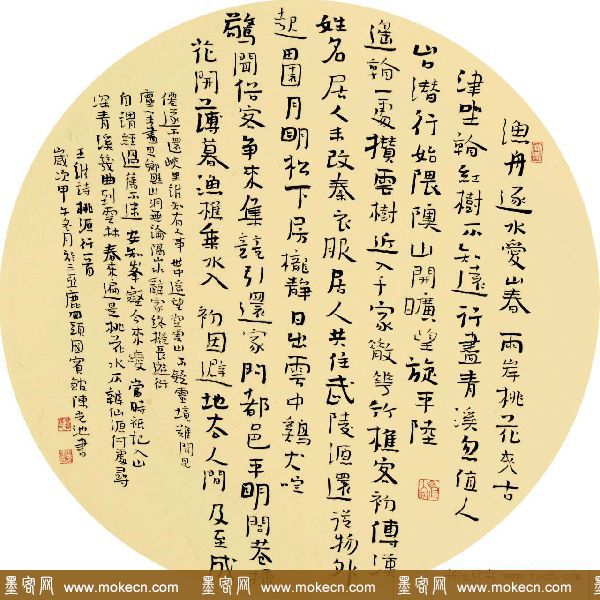 漁舟逐水愛山春兩岸桃花夾古
津坐看紅樹不知遠行盡青溪忽值人
山口潛行始隈隩山開曠望旋平陸
遙看一處攢雲樹近入千家散花竹樵客初傳漢
姓名居人未改秦衣服居人共住武陵源還從物外
起田園月明松下房櫳靜日出雲中雞犬喧
驚聞俗客爭來集競引還家問都邑平明閭巷掃
花開薄暮漁樵乘水入初因避地去人間及至成
僊遂不還峽里誰知有人事世中遙望空雲山不疑靈境難聞見
塵心未盡思鄉縣出洞無論隔山水辭家終擬長遊衍
自謂經過舊不迷安知峯壑今來變當時祇記入山
深青溪幾曲到雲林春來遍是桃花水不辨仙源何處尋
王維詩桃源行一首
歲次甲午冬月於三亞鹿回頭國賓館陳池書
墨客网 www.mokecn.com 墨客网 www.mokecn.com 墨客网 www.mokecn.com